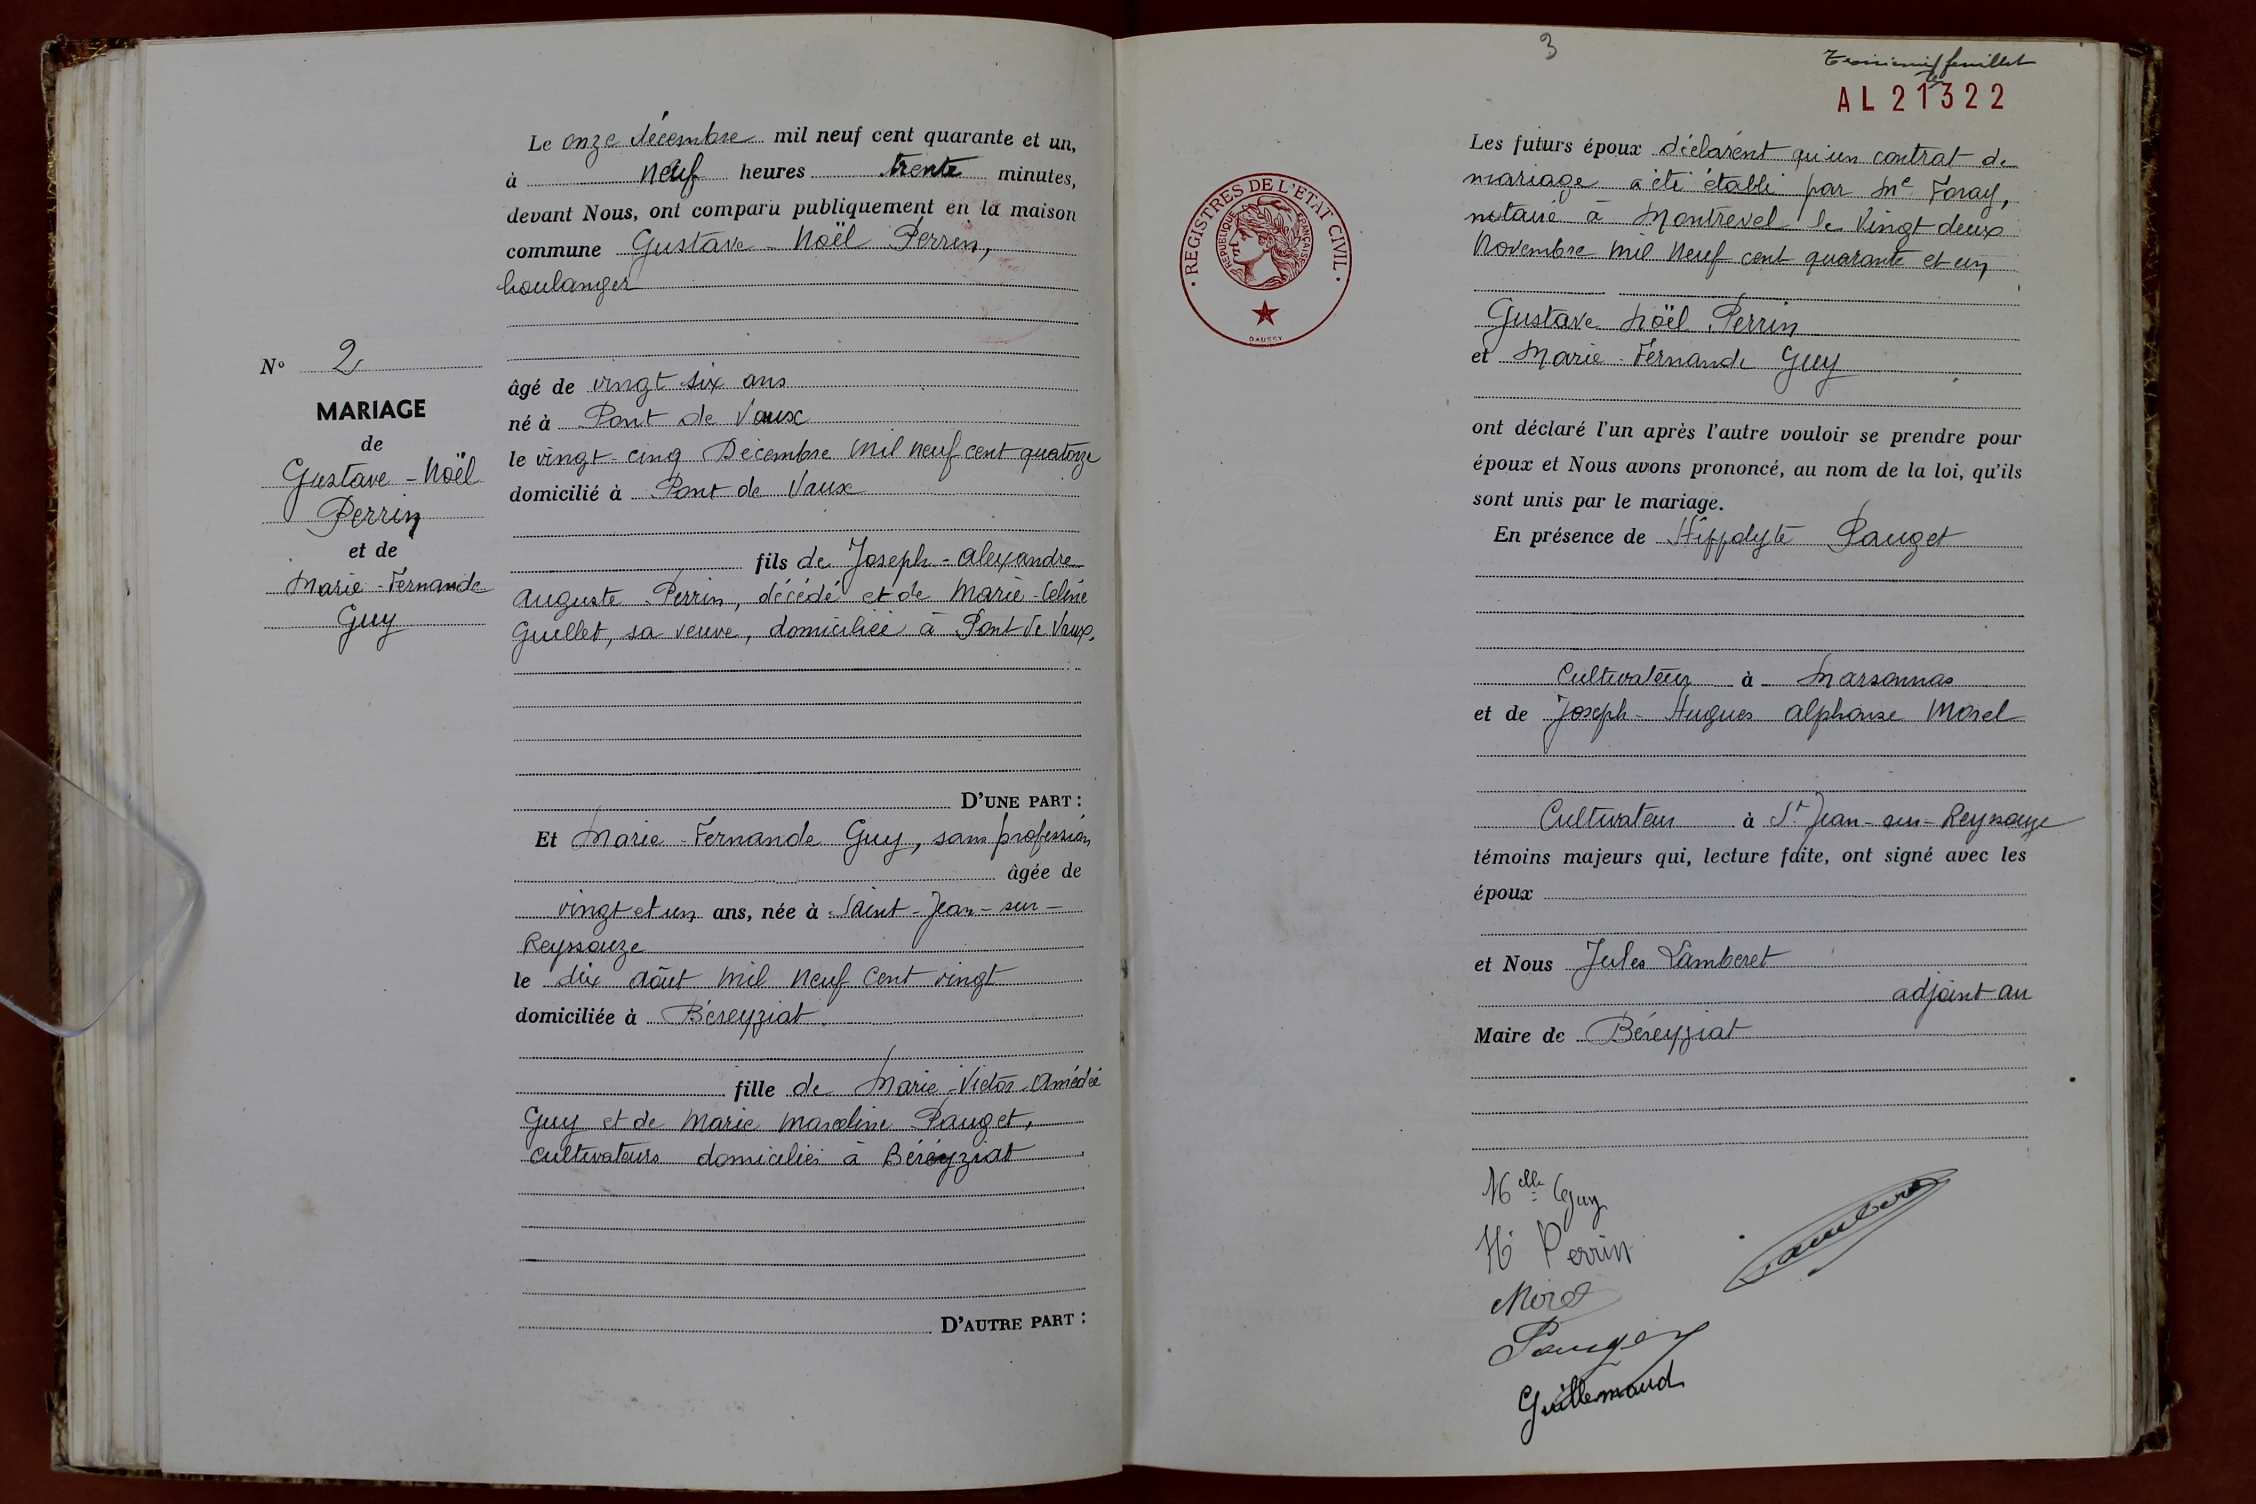 Le onze décembre mil neuf cent quarante et un,
à neuf heures trente minutes,
devant Nous, ont comparu publiquement en la maison
commune Gustave - Noël Perrin,
boulanger
N° 2
MARIAGE
de
Gustave - Noël
Perrin
et de
Marie - Fernande
Guy
âgé de vingt six ans
né à Pont de Vaux
le vingt-cinq Décembre mil neuf cent quatorze
domicilié à Pont de Vaux
fils de Joseph - Alexandre
Auguste Perrin, décédé et de Marie - Céline
Guillet, sa veuve, domiciliée à Pont de Vaux.
D'UNE PART :
Et Marie - Fernande Guy, sans profession
âgée de
vingt et un ans, née à Saint - Jean - sur -
Reyssouze
le dix août mil neuf cent vingt
domiciliée à Béreyziat
fille de Marie - Victor - Amédée
Guy et de Marie Marceline Pauget,
cultivateurs domiciliés à Béréyziat
D'AUTRE PART :
3
troisième feuillet
AL 21322
REGISTRES DE L'ETAT CIVIL
REPUBLIQUE FRANÇAISE
DAUSSY
Les futurs époux déclarent qu'un contrat de
mariage a été établi par Me Foray,
notaire à Montrevel le vingt deux
Novembre mil neuf cent quarante et un
Gustave Noël Perrin
et Marie - Fernande Guy
ont déclaré l'un après l'autre vouloir se prendre pour
époux et Nous avons prononcé, au nom de la loi, qu'ils
sont unis par le mariage.
En présence de Hippolyte Pauget
Cultivateur à Marsonnas
et de Joseph - Hugues Alphonse Morel
Cultivateur à St Jean - sur - Reyssouze
témoins majeurs qui, lecture faite, ont signé avec les
époux
et Nous Jules Lamberet
adjoint au
Maire de Béreyziat
Melle Guy
Perrin
Morel
Pauget
Guillemaud
Lamberet